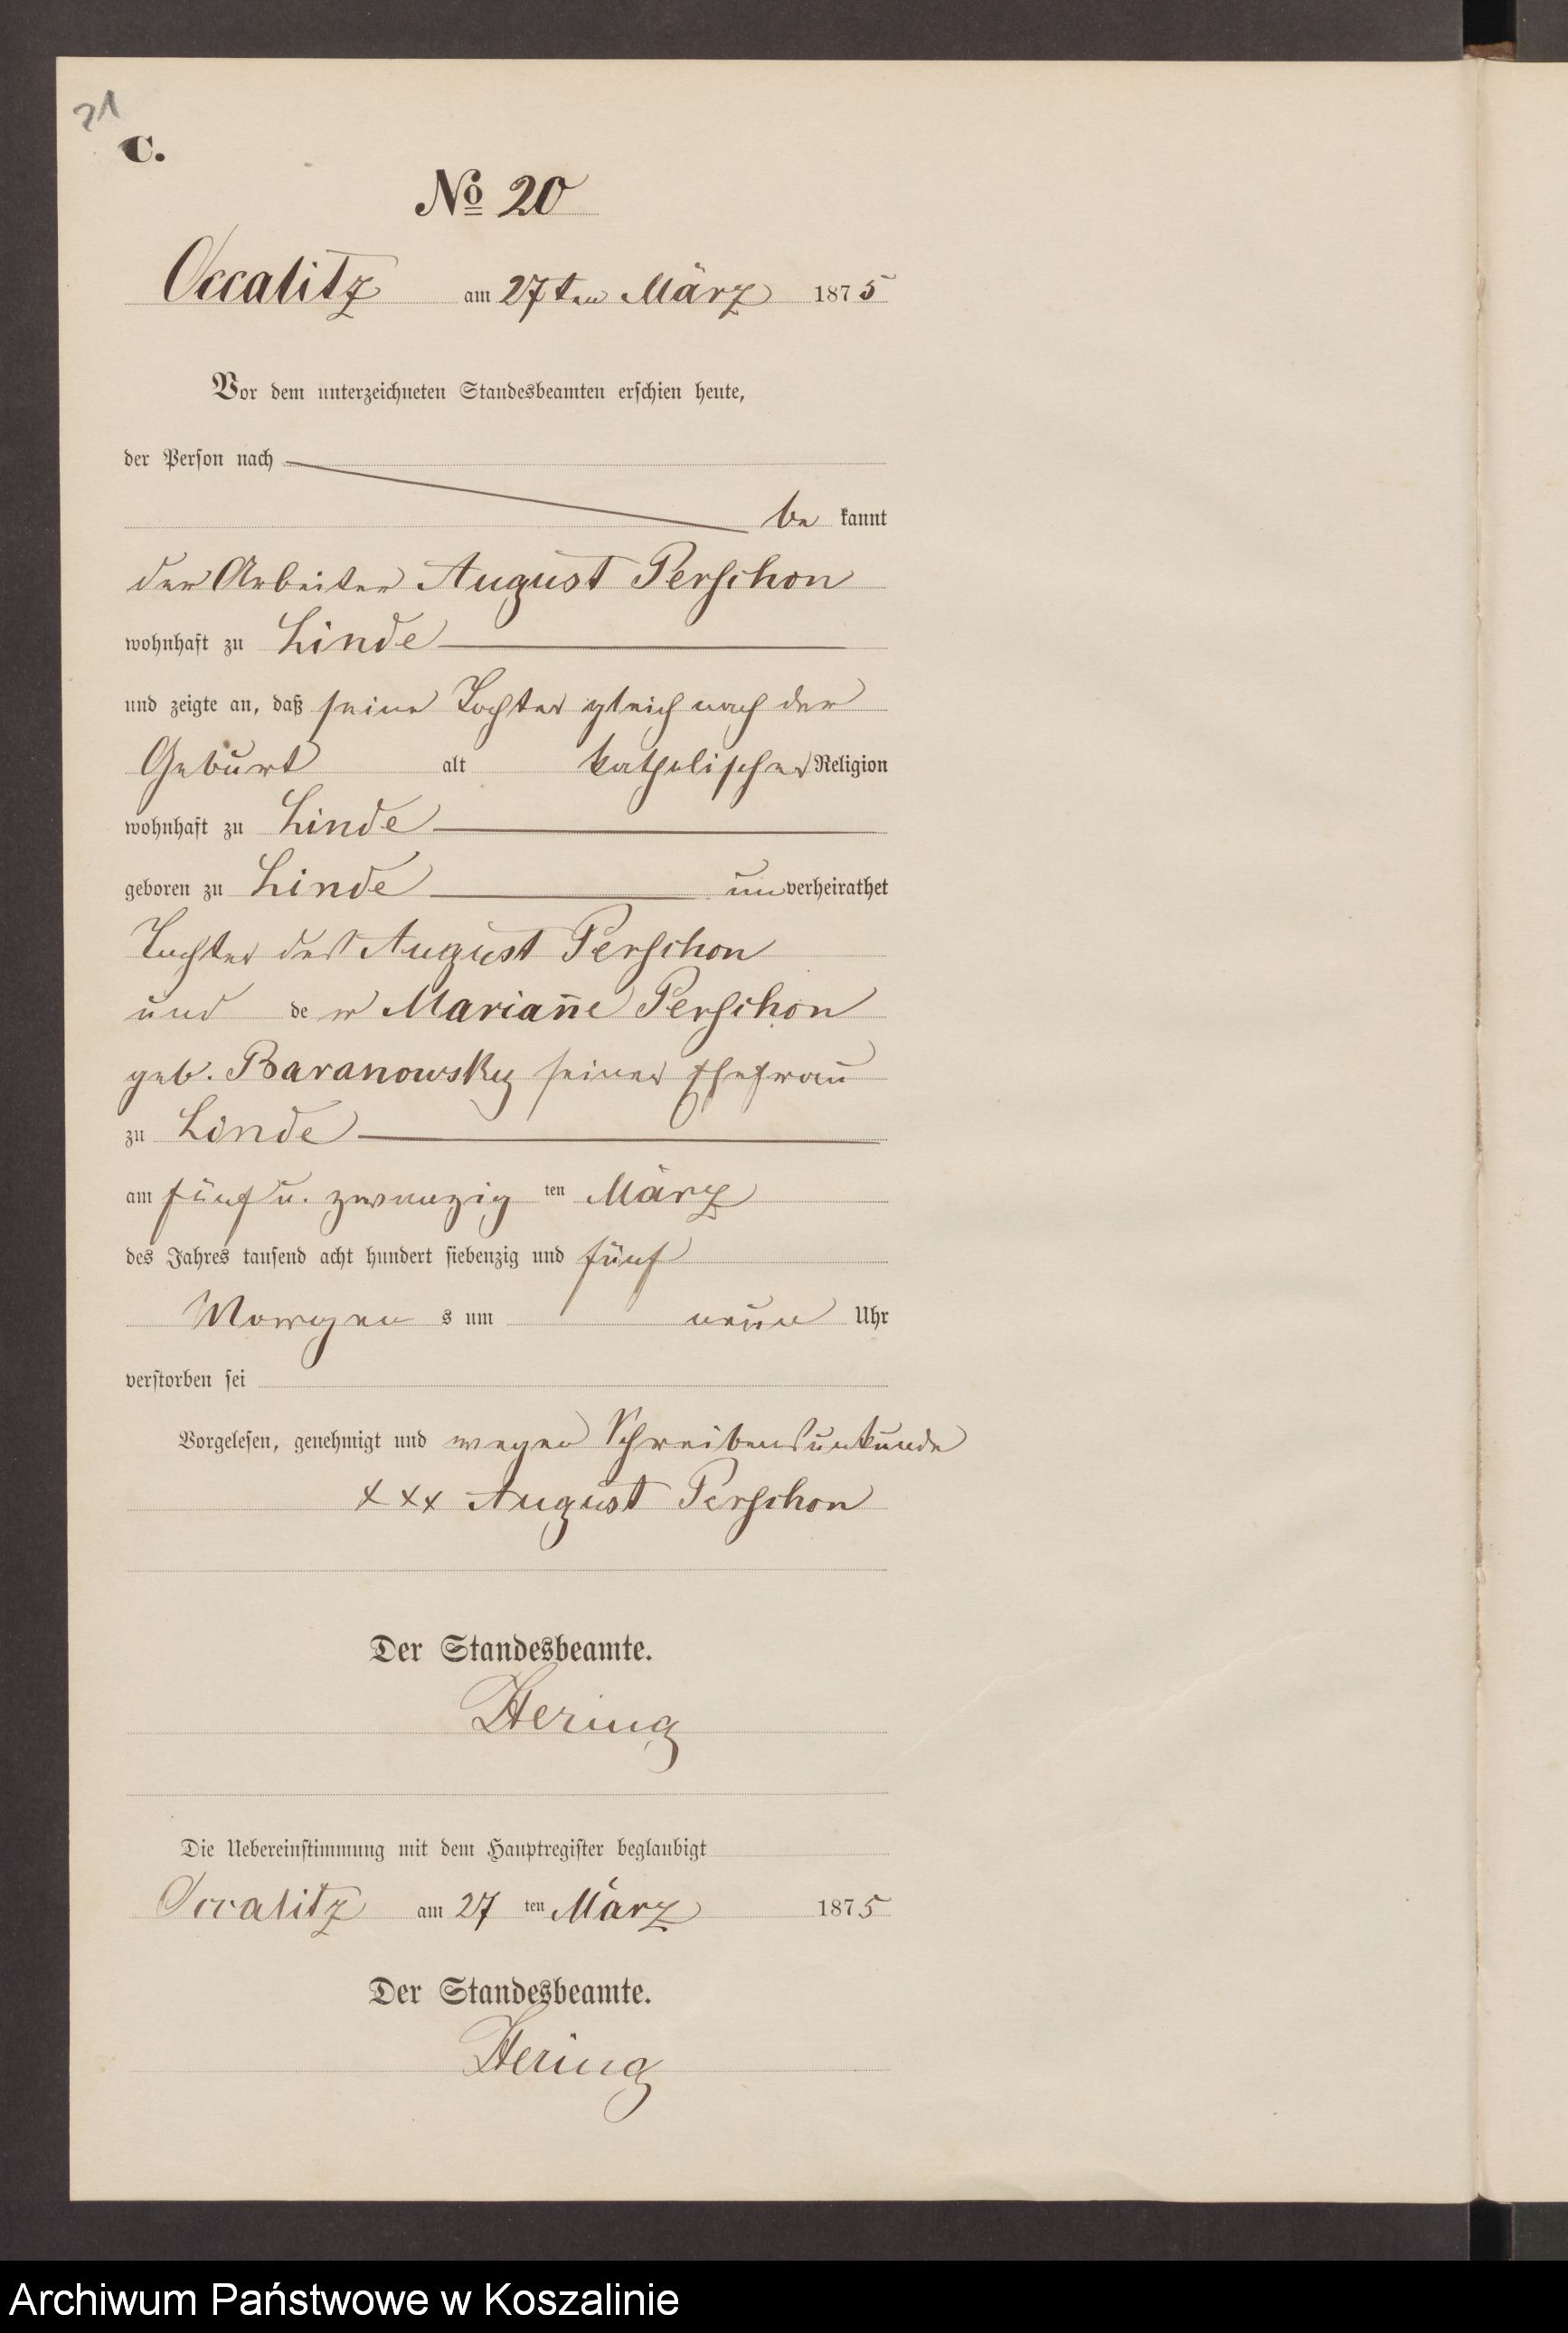 21
C.
No 20
Occalitz am 27ten März 1875
Vor dem unterzeichneten Standesbeamten erschien heute,
der Person nach
be kannt
der Arbeiter August Perschon
wohnhaft zu Linde
und zeigte an, daß seine Tochter gleich nach der
Geburt alt katholischer Religion
wohnhaft zu Linde
geboren zu Linde unverheirathet
Tochter des August Perschon
und der Marian̄e Perschon
geb. Baranowsky seiner Ehefrau
zu Linde
am fünf u. zwanzig ten März
des Jahres tausend acht hundert siebenzig und fünf
Morgen s um neun Uhr
verstorben sei
Vorgelesen, genehmigt und wegen Schreibensunkunde
xxx August Perschon
Der Standesbeamte.
Hering
Die Uebereinstimmung mit dem Hauptregister beglaubigt
Occalitz am 27 ten März 1875
Der Standesbeamte.
Hering
Archiwum Państwowe w Koszalinie